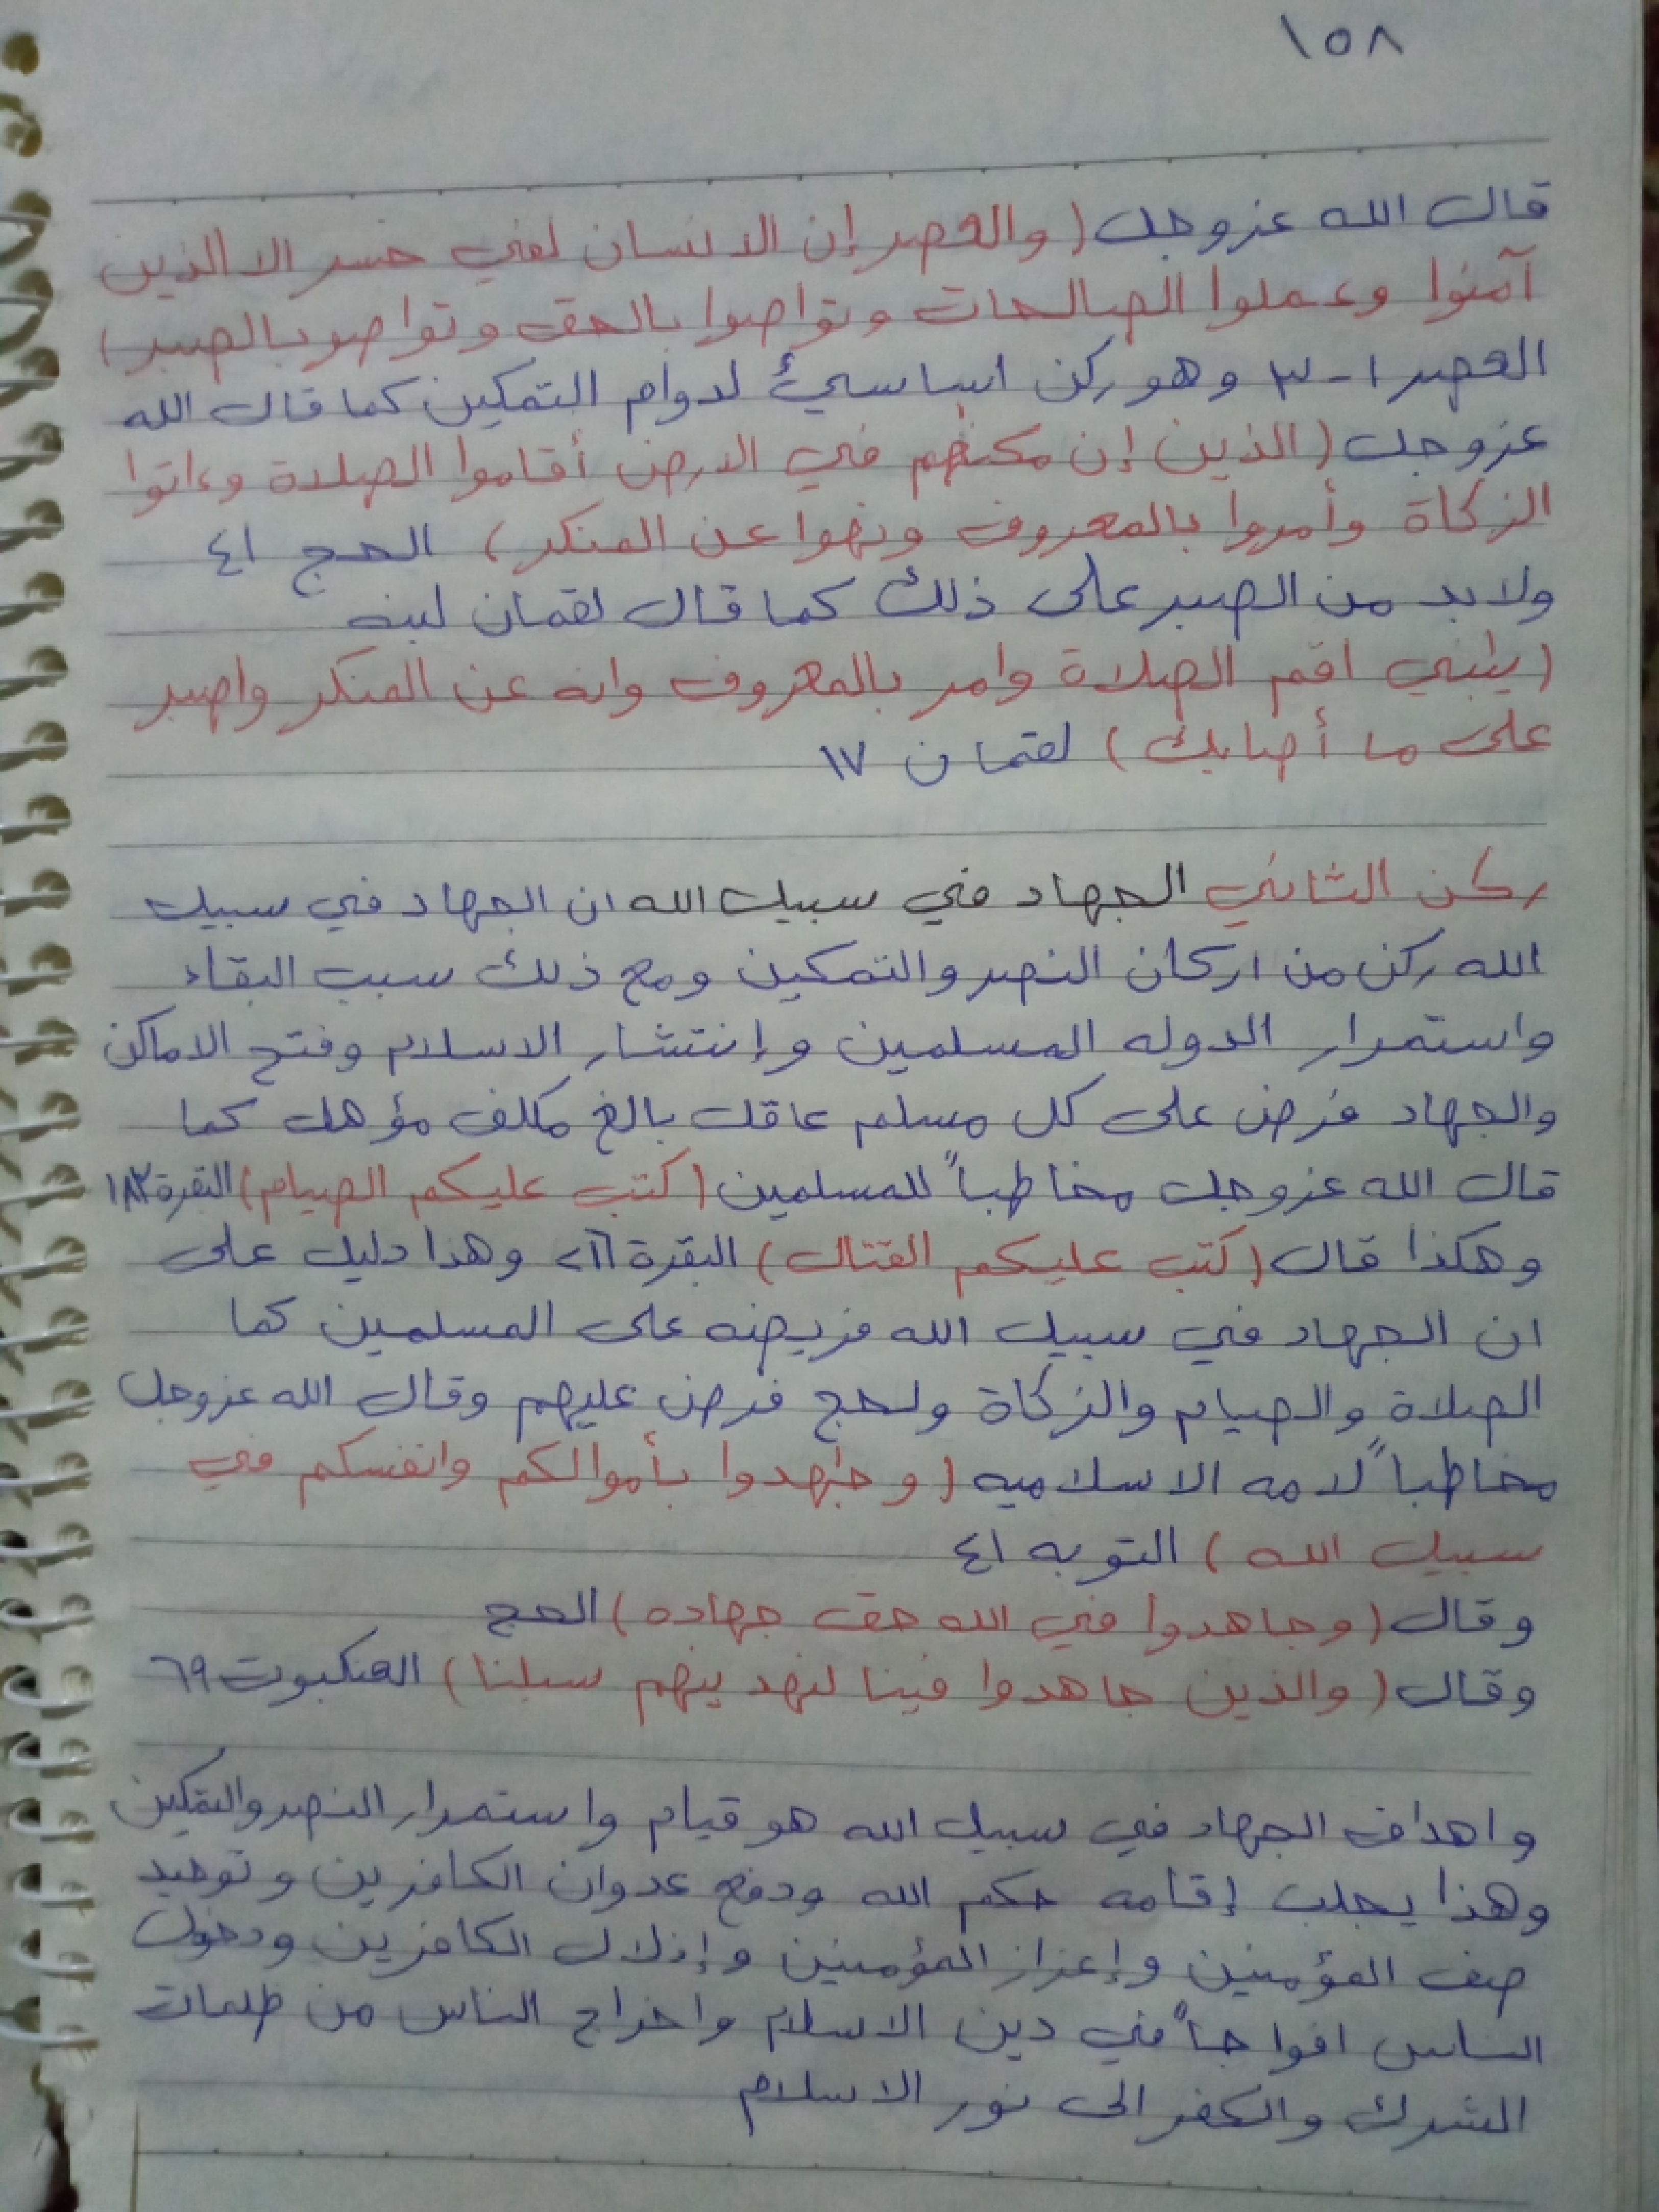 ١٥٨
قال الله عزوجل (والعصر إن الانسان لفي خسر الا الذين
آمنوا وعملوا الصالحات وتواصوا بالحق وتواصو بالصبر)
العصر ١-٣ وهو ركن اساسيُ لدوام التمكين كما قال الله
عزوجل (الذين إن مكنٰهم في الارض أقاموا الصلاة وءاتوا
الزكاة وأمروا بالمعروف ونهوا عن المنكر) الحج ٤١
ولابد من الصبر على ذلك كما قال لقمان لبنه
(يٰبني اقم الصلاة وامر بالمعروف وانه عن المنكر واصبر
على ما أصابك) لقمان ١٧
ركن الثاني الجهاد في سبيل الله ان الجهاد في سبيل
الله ركن من اركان النصر والتمكين ومع ذلك سبب البقاء
واستمرار الدوله المسلمين وإنتشار الاسلام وفتح الاماكن
والجهاد فرض على كل مسلم عاقل بالغ مكلف مؤهل كما
قال الله عزوجل مخاطباً للمسلمين (كتب عليكم الصيام) البقرة ١٨٣
وهكذا قال (كتب عليكم القتال) البقرة ٢١٦ وهذا دليل على
ان الجهاد في سبيل الله فريضه على المسلمين كما
الصلاة والصيام والزكاة ولحج فرض عليهم وقال الله عزوجل
مخاطباً لامه الاسلاميه (وجٰهدوا بأموالكم وانفسكم في
سبيل الله) التوبه ٤١
وقال (وجاهدوا في الله حق جهاده) الحج
وقال (والذين جاهدوا فينا لنهدينهم سبلنا) العنكبوت ٦٩
واهداف الجهاد في سبيل الله هو قيام واستمرار النصر والتمكين
وهذا يجلب إقامه حكم الله ودفع عدوان الكافرين وتوحيد
صف المؤمنين وإعزاز المؤمنين وإذلال الكافرين ودخول
الناس افواجاً في دين الاسلام واخراج الناس من ظلمات
الشرك والكفر الى نور الاسلام